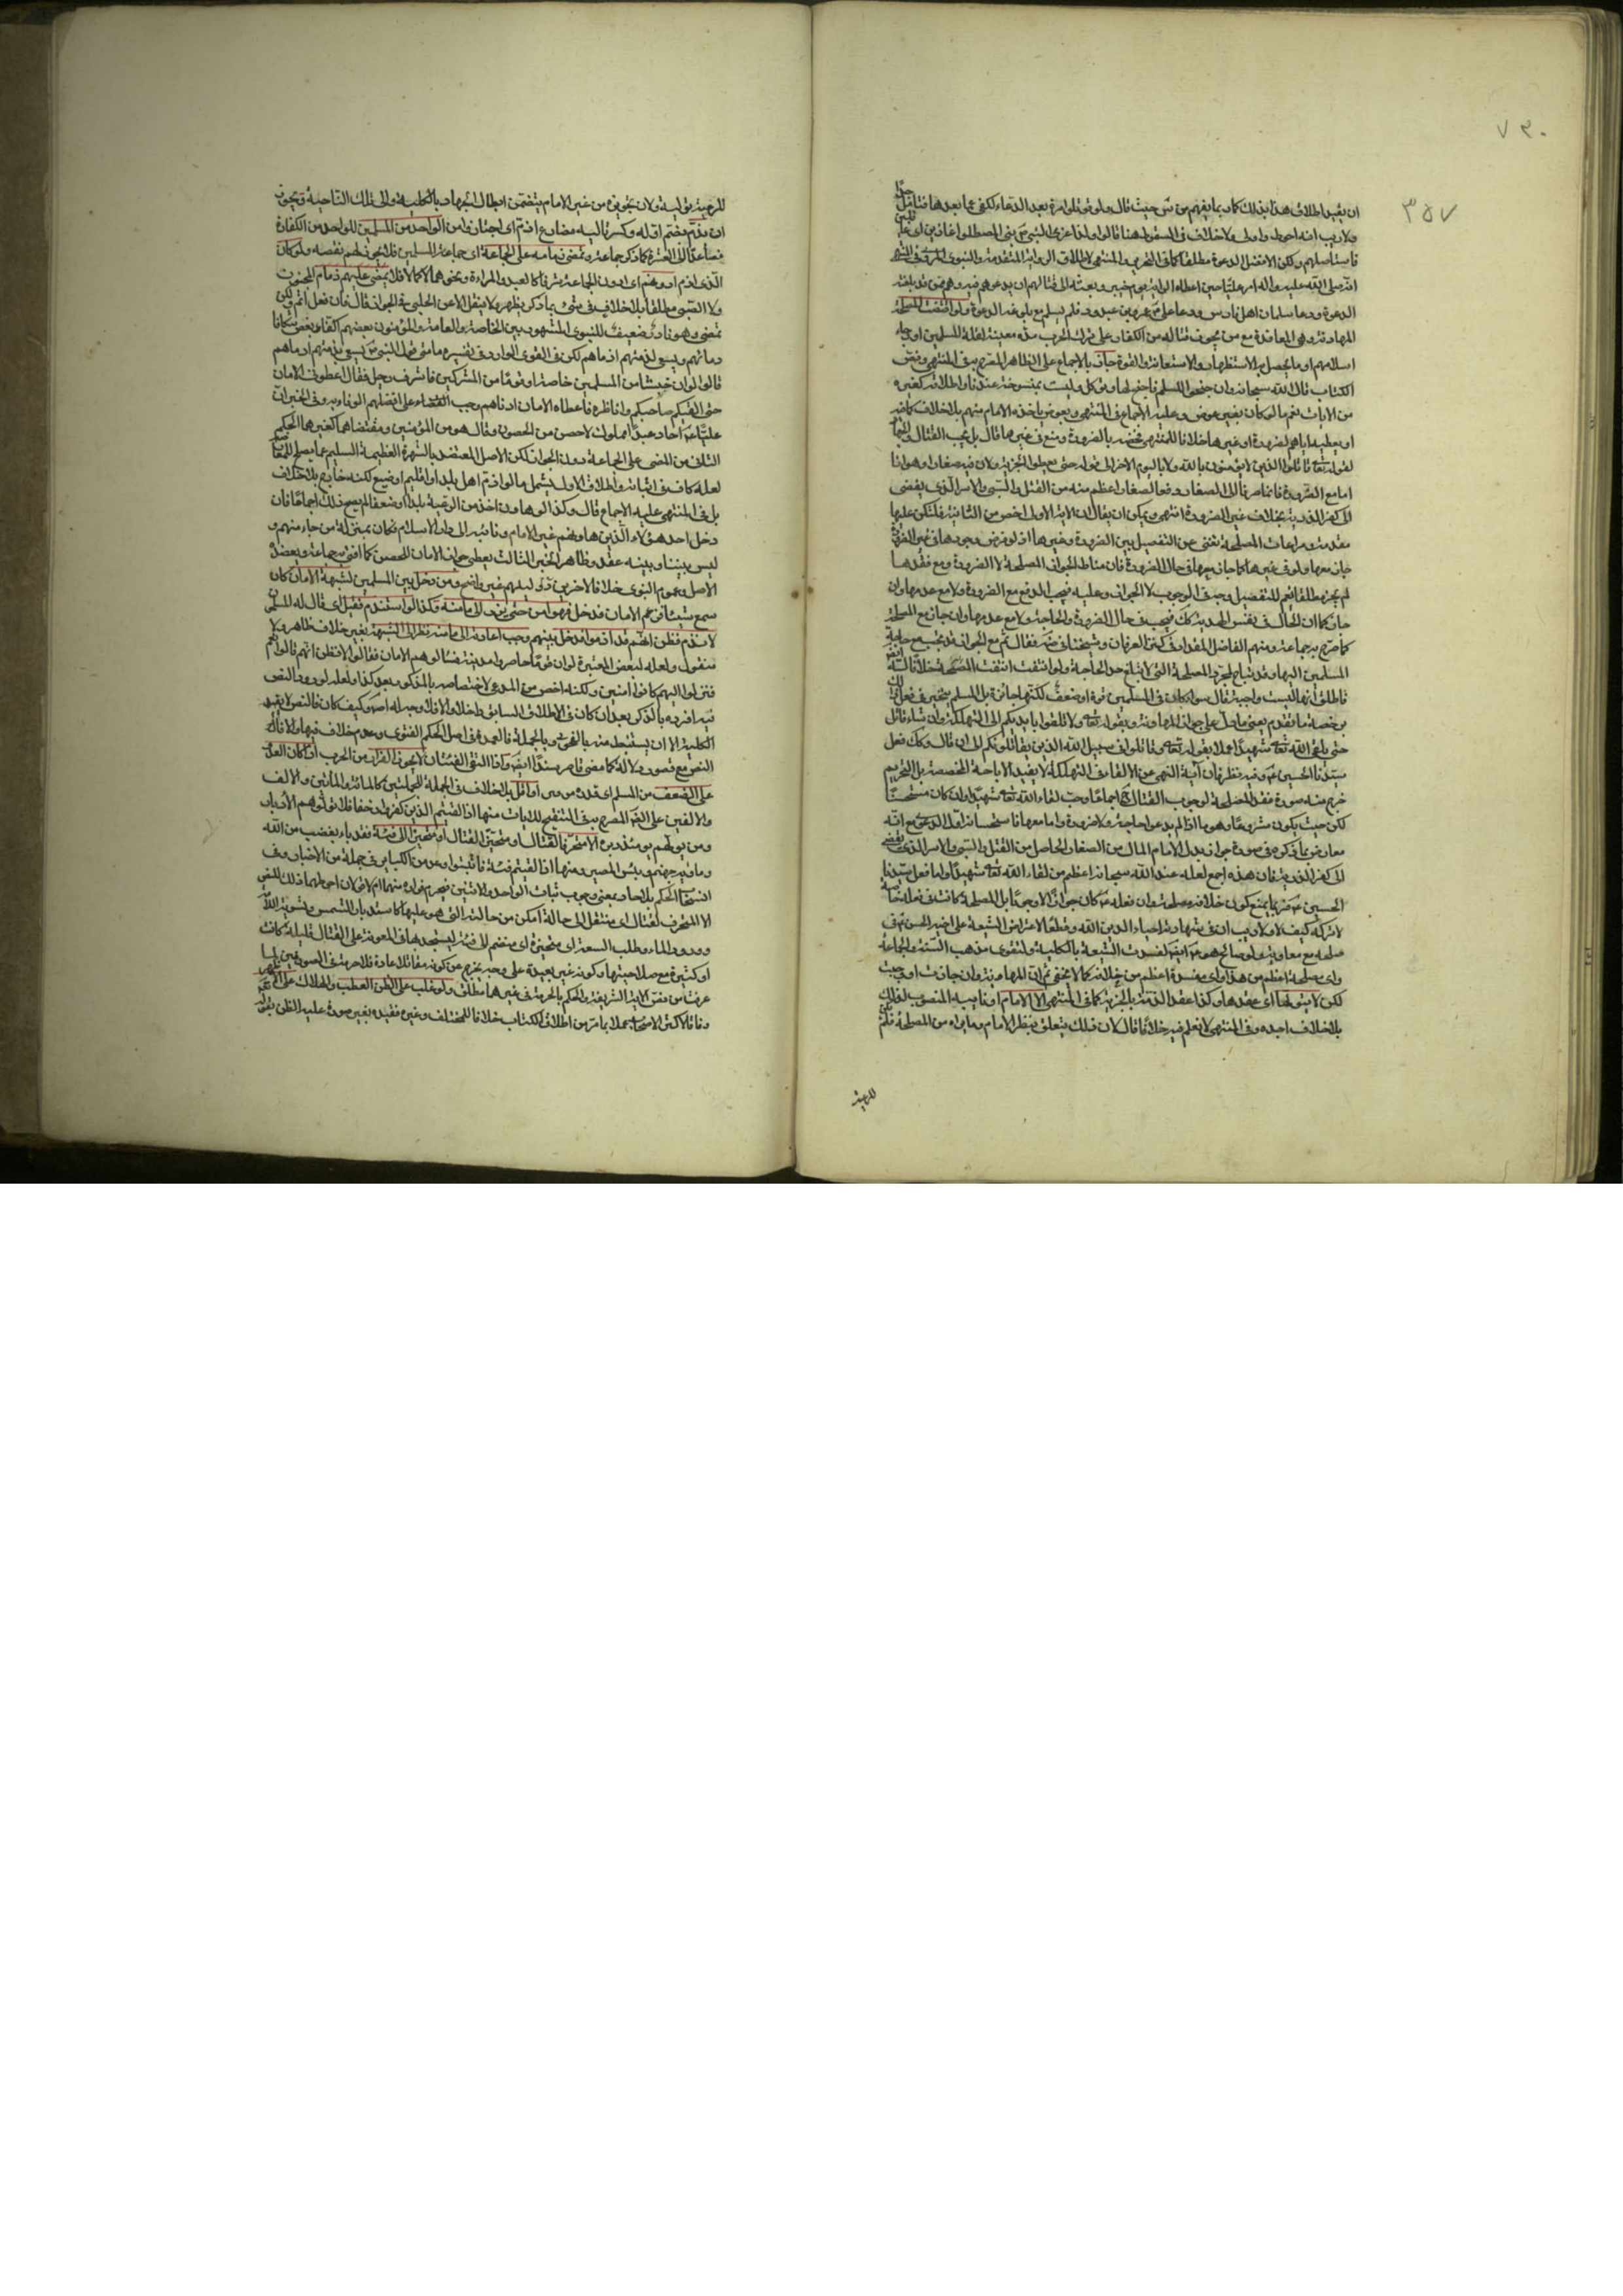 ٧٣٠
٣٥٧
ان يقيد اطلاق هذا بذلك كما ربما يفهم من حيث قال ولو قوتلوا مرة بعد الدعاء لكفى عما بعدها فتامل جدا
ولا ريب انه احوط واولى ولا خلاف في السقوط هنا قالوا ولذا غزى النبي ص بني المصطلق غارين اي غافلين
فاستاصلهم ولكن الافضل الدعوة مطلقا كما في التحرير والمنتهى لاطلاق الرواية المتقدمة والنبوي المروي في
انه صلى الله عليه واله امر عليا حين اعطاه الراية يوم خيبر وبعثه الى قتالهم ان يدعوهم وهم ممن قد بلغته
الدعوة ودعا سلمان اهل فارس ودعا علي ع عمرو بن عبدود فلم يسلم مع بلوغه الدعوة ولو اقتضت المصلحة
المهادنة وهي المعاقدة مع من يجوز قتاله من الكفار على ترك الحرب مدة معينة لقلة المسلمين او رجاء
اسلامهم او ما يحصل به الاستظهار والاستعانة والقوة جاز بالاجماع على الظاهر المصرح به في المنتهى ونص
الكتاب قال الله سبحانه وان جنحوا للسلم فاجنح لها وتوكل وليست بمنسوخة عندنا واطلاقه كغيره
من الايات يعم ما لو كان بغير عوض وعليه الاجماع في المنتهى وبعوض ياخذه الامام منهم بلا خلاف
او يعطيه اياهم لضرورة او غيرها خلافا للمنتهى فخصه بالضرورة ومنع في غيرها قال بل يجب القتال والجهاد
لقوله تعالى قاتلوا الذين لا يؤمنون بالله ولا باليوم الاخر الى قوله حتى يعطوا الجزية ولان فيه صغارا وهوانا
اما مع الضرورة فانما صرنا الى الصغار دفعا لصغار اعظم منه من القتل والسبي والاسر الذي يفضي
الى كفر الذرية بخلاف غير الضرورة انتهى ويمكن ان يقال ان الاية الاولى اخص من الثانية فلتكن عليها
مقدمة ومراعات المصلحة تغني عن التفصيل بين الضرورة وغيرها اذ لو فرض وجودها في غير الضرورة
جاز معها ولو في غيرها كما جاز معها في حال الضرورة فان مناط الجواز المصلحة لا الضرورة ومع فقدها
لم يجز مطلقا نعم للتفصيل وجه في الوجوب لا الجواز وعليه فيجب الدفع مع الضرورة ولا مع عدمها وان
جاز كما ان الحال في نفس الهدنة كذلك فيجب في حال الضرورة والحاجة ولا مع عدمها وان جاز مع المصلحة
كما صرح به جماعة ومنهم الفاضل المقداد في كنز العرفان وشيخنا في ضه فقال ثم مع الجواز قد يجب مع حاجة
المسلمين اليها وقد تباح لمجرد المصلحة التي لا تبلغ حد الحاجة ولو انتفت انتفت الصحة
فاطلق انها ليست واجبة قال سواء كان في المسلمين قوة او ضعف لكنها جائزة بل المسلم يتخير في فعل ذلك
برخصة ما تقدم يعني ما دل على جواز المهادنة وبقوله تعالى ولا تلقوا بايديكم الى التهلكة وان شاء قاتل
حتى يلقى الله تعالى شهيدا عملا بقوله تعالى وقاتلوا في سبيل الله الذين يقاتلونكم الى ان قال وكذلك فعل
سيدنا الحسين ع وفيه نظر فان آية النهي عن الالقاء في التهلكة لا يفيد الاباحة المخصصة بل التحريم
خرج منه صورة فقد المصلحة لوجوب القتال ح اجماعا وحب لقاء الله تعالى شهيدا وان كان مستحسنا
لكن حيث يكون مشروعا وهو ما اذا لم يدعو احاجة ولا ضرورة واما معها فاستحسانه اول الدعوى مع انه
معارض بما ذكروه في صورة جواز بذل الامام المال من الصغار الحاصل من القتل والسبي والاسر الذي يفضي
الى كفر الذرية فان هذه اجمع لعله عند الله سبحانه اعظم من لقاء الله تعالى شهيدا واما فعل سيدنا
الحسين ع فربما يمنع كون خلافه مصلحة وان فعله ع كان جوازا لا وجوبا بل المصلحة كانت في فعله
لا تركه كيف لا ولا ريب ان في شهادته احياء لدين الله وقطعا لاعتراض الشيعة على اخيه الحسن ع في
صلحه مع معاوية ولو صالح هو ع ايضا لفسدت الشيعة بالكلية ولتقوى مذهب السنة والجماعة
واي مصلحة اعظم من هذا واي مفسدة اعظم من خلافه كما لا يخفى ثم ان المهادنة وان جازت او وجبت
لكن لا يتولاها اي عقدها وكذا عقد الذمة بالجزية كما في المنتهى الا الامام او نايبه المنصوب لذلك
بلا خلاف اجده وفي المنتهى لا نعلم فيه خلافا قال لان ذلك يتعلق بنظر الامام وما يراه من المصلحة فلم يكن
للرعية
للرعية توليه ولان تجويزه من غير الامام يتضمن ابطال الجهاد بالكلية والى تلك الناحية ويجوز
ان يذم بضم اوله وكسر ثالثه مضارع اذم اي اجار وامن الواحد من المسلمين للواحد من الكفار
فصاعدا الى العشرة كما ذكر جماعة ويمضى ذمامه على الجماعة اي جماعة المسلمين فلا يجوز لهم نقضه ولو كان
الذي اذم ادونهم اي ادون الجماعة شرفا كالعبد والمراة ونحوهما كمالا فلا يمضى عليهم ذمام المجنون
ولا الصبي مطلقا بلا خلاف في شيء مما ذكر يظهر ولا ينقل الا عن الحلبي في الجواز قال فان فعل اثم ولكن
يمضى وهو نادر ضعيف للنبوي المشهور بين الخاصة والعامة والمؤمنون بعضهم اكفاء بعض تتكافا
دماؤهم ويسعى بذمتهم ادناهم لكن في القوي الوارد في تفسيره ما معنى قول النبي ص يسعى بذمتهم ادناهم
قال لو ان جيشا من المسلمين حاصروا قوما من المشركين فاشرف رجل فقال اعطوني الامان
حتى القى صاحبكم واناظره فاعطاه الامان ادناهم وجب على افضلهم الوفاء به وفي الخبر ان
عليا ع اجاز عبد مملوك لاهل حصن من الحصون وقال هو من المؤمنين ومقتضاهما كغيرهما الحكم
الثاني من المضي على الجماعة دون الجواز لكن الاصل المعتضد بالشهرة العظيمة السليم عما يصلح للمعارضة
لعله كاف في اثباته واطلاق الاول يشمل ما لو اذم اهل بلد او اقليم او ضيع لكنه خارج بلا خلاف
بل في المنتهى عليه الاجماع قال وكذا لو هادن احد من الرعية بلدا وضعفا لم يصح ذلك اجماعا فان
دخل احد هؤلاء الذين هادنهم غير الامام ونائبه الى دار الاسلام فكان بمنزلة من جاء منهم و
ليس بيننا وبينه عقد وظاهر الخبر الثالث يعطي جواز الامان للحصن كما افتى به جماعة ويعضده
الاصل وعموم النبوي خلافا لاخرين دليلهم غير واضح ومن دخل بين المسلمين لشبهة الامان كان
سمع شيئا فزعم الامان فدخل فهو امن حتى يرد الى مامنه وكذا لو استذم فقيل اي قال له المسلمون
لا نذم فظن انهم قد اذموا فدخل بينهم وجب اعادته الى مامنه نظرا الى الشبهة بغير خلاف ظاهر ولا
منقول ولعله لبعض المعتبرة لو ان قوما حاصروا مدينة فسالوهم الامان فقالوا لا فظنوا انهم قالوا نعم
فنزلوا اليهم كانوا آمنين ولكنه اخص من المدعى لاختصاصه بالمذكور بعد كذا ولعله لورود النص
فيه افرد به بالذكر بعد ان كان في الاطلاق السابق داخلا والا فلا وجه له اصلا وكيف كان فالنص لا يفيد
الكلية الا ان يستنبط منه بالفحوى وبالجملة فالعمدة في اصل الحكم الفتوى وعدم خلاف فيها والا فذلك
النص مع قصوره دلالة كما مضى قاصر سندا ايضا واذا التقى الفئتان لا يجوز الفرار من الحرب اذا كان العدو
على الضعف من المسلم اي قدره مرتين او اقل بلا خلاف في الجملة للجملتين كالمائة والمائتين والالف
والالفين على المصرح به في التنقيح للايات منها اذا لقيتم الذين كفروا زحفا فلا تولوهم الادبار
ومن يولهم يومئذ دبره الا متحرفا لقتال او متحيزا الى فئة فقد باء بغضب من الله
وماويه جهنم وبئس المصير ومنها اذا لقيتم فئة فاثبتوا وعد من الكباير في جملة من الاخبار وفي
انسحاب الحكم بالاحاد بمعنى وجوب ثبات الواحد للاثنين فيحرم فراره منهما ام لا قولان احوطهما ذلك للنص
الا المتحرف لقتال اي منتقل الى حالة امكن من حالته التي هو عليها كاستدبار الشمس وتسوية اللامة
وورود الماء وطلب السعة او متحيزة اي منضم الى فئة ليستنجد بها في المعونة على القتال قليلة كانت
او كثيرة مع صلاحيتها وكونه غير بعيدة على وجه يخرجه عن كونه مقاتلا عادة فلا حرمة في الصورتين لما
عرفت من نص الاية الشريفة والحكم بالحرمة في غيرها مطلق ولو غلب على الظن العطب والهلاك على الاظهر
وفاقا لاكثر الاصحاب عملا بما مر من اطلاق الكتاب خلافا للمختلف وغيره فقيده بغير صورة غلبة الظن بقوله